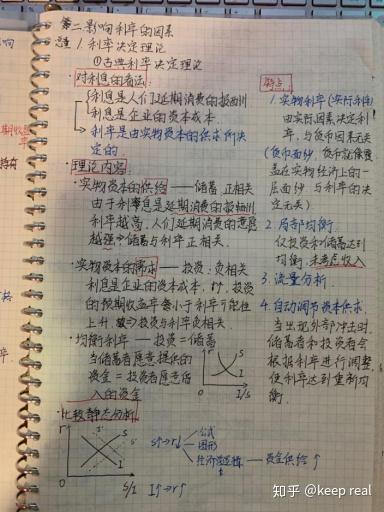 第二 影响利率的因素
1. 利率决定理论
①古典利率决定理论
对利息的看法
利息是人们延期消费的报酬
利息是企业的资本成本
→利率是由实物资本的供求所决定的
理论内容:
·实物资本的供给——储蓄:正相关
由于利息是延期消费的报酬
利率越高,人们延期消费的意愿
越强⇒储蓄与利率正相关.
·实物资本的需求——投资:负相关
利息是企业的资本成本, r↑, 投资
的预期收益率小于利率可能性
上升, 故⇒投资与利率负相关.
·均衡利率——投资=储蓄
当储蓄者愿意提供的
资金=投资者愿意借
入的资金
r
S
I
0
I/S
·比较静态分析
r
S
S'
I
0
S/I
S↑⇒r↓
公式
图形
经济学逻辑——资金供给↑
I↑⇒r↑
特点
1. 实物利率(实际利率)
由实际因素决定利
率, 与货币因素无关
(货币面纱, 货币就像覆
盖在实物经济上的一
层面纱, 与利率的决
定无关)
2. 局部均衡.
仅投资和储蓄达到
均衡, 未考虑收入
3. 流量分析.
4. 自动调节资本供求.
当出现外部冲击时,
储蓄者和投资者会
根据利率进行调整,
使利率达到重新均
衡.
期收益
率
知乎 @keep real